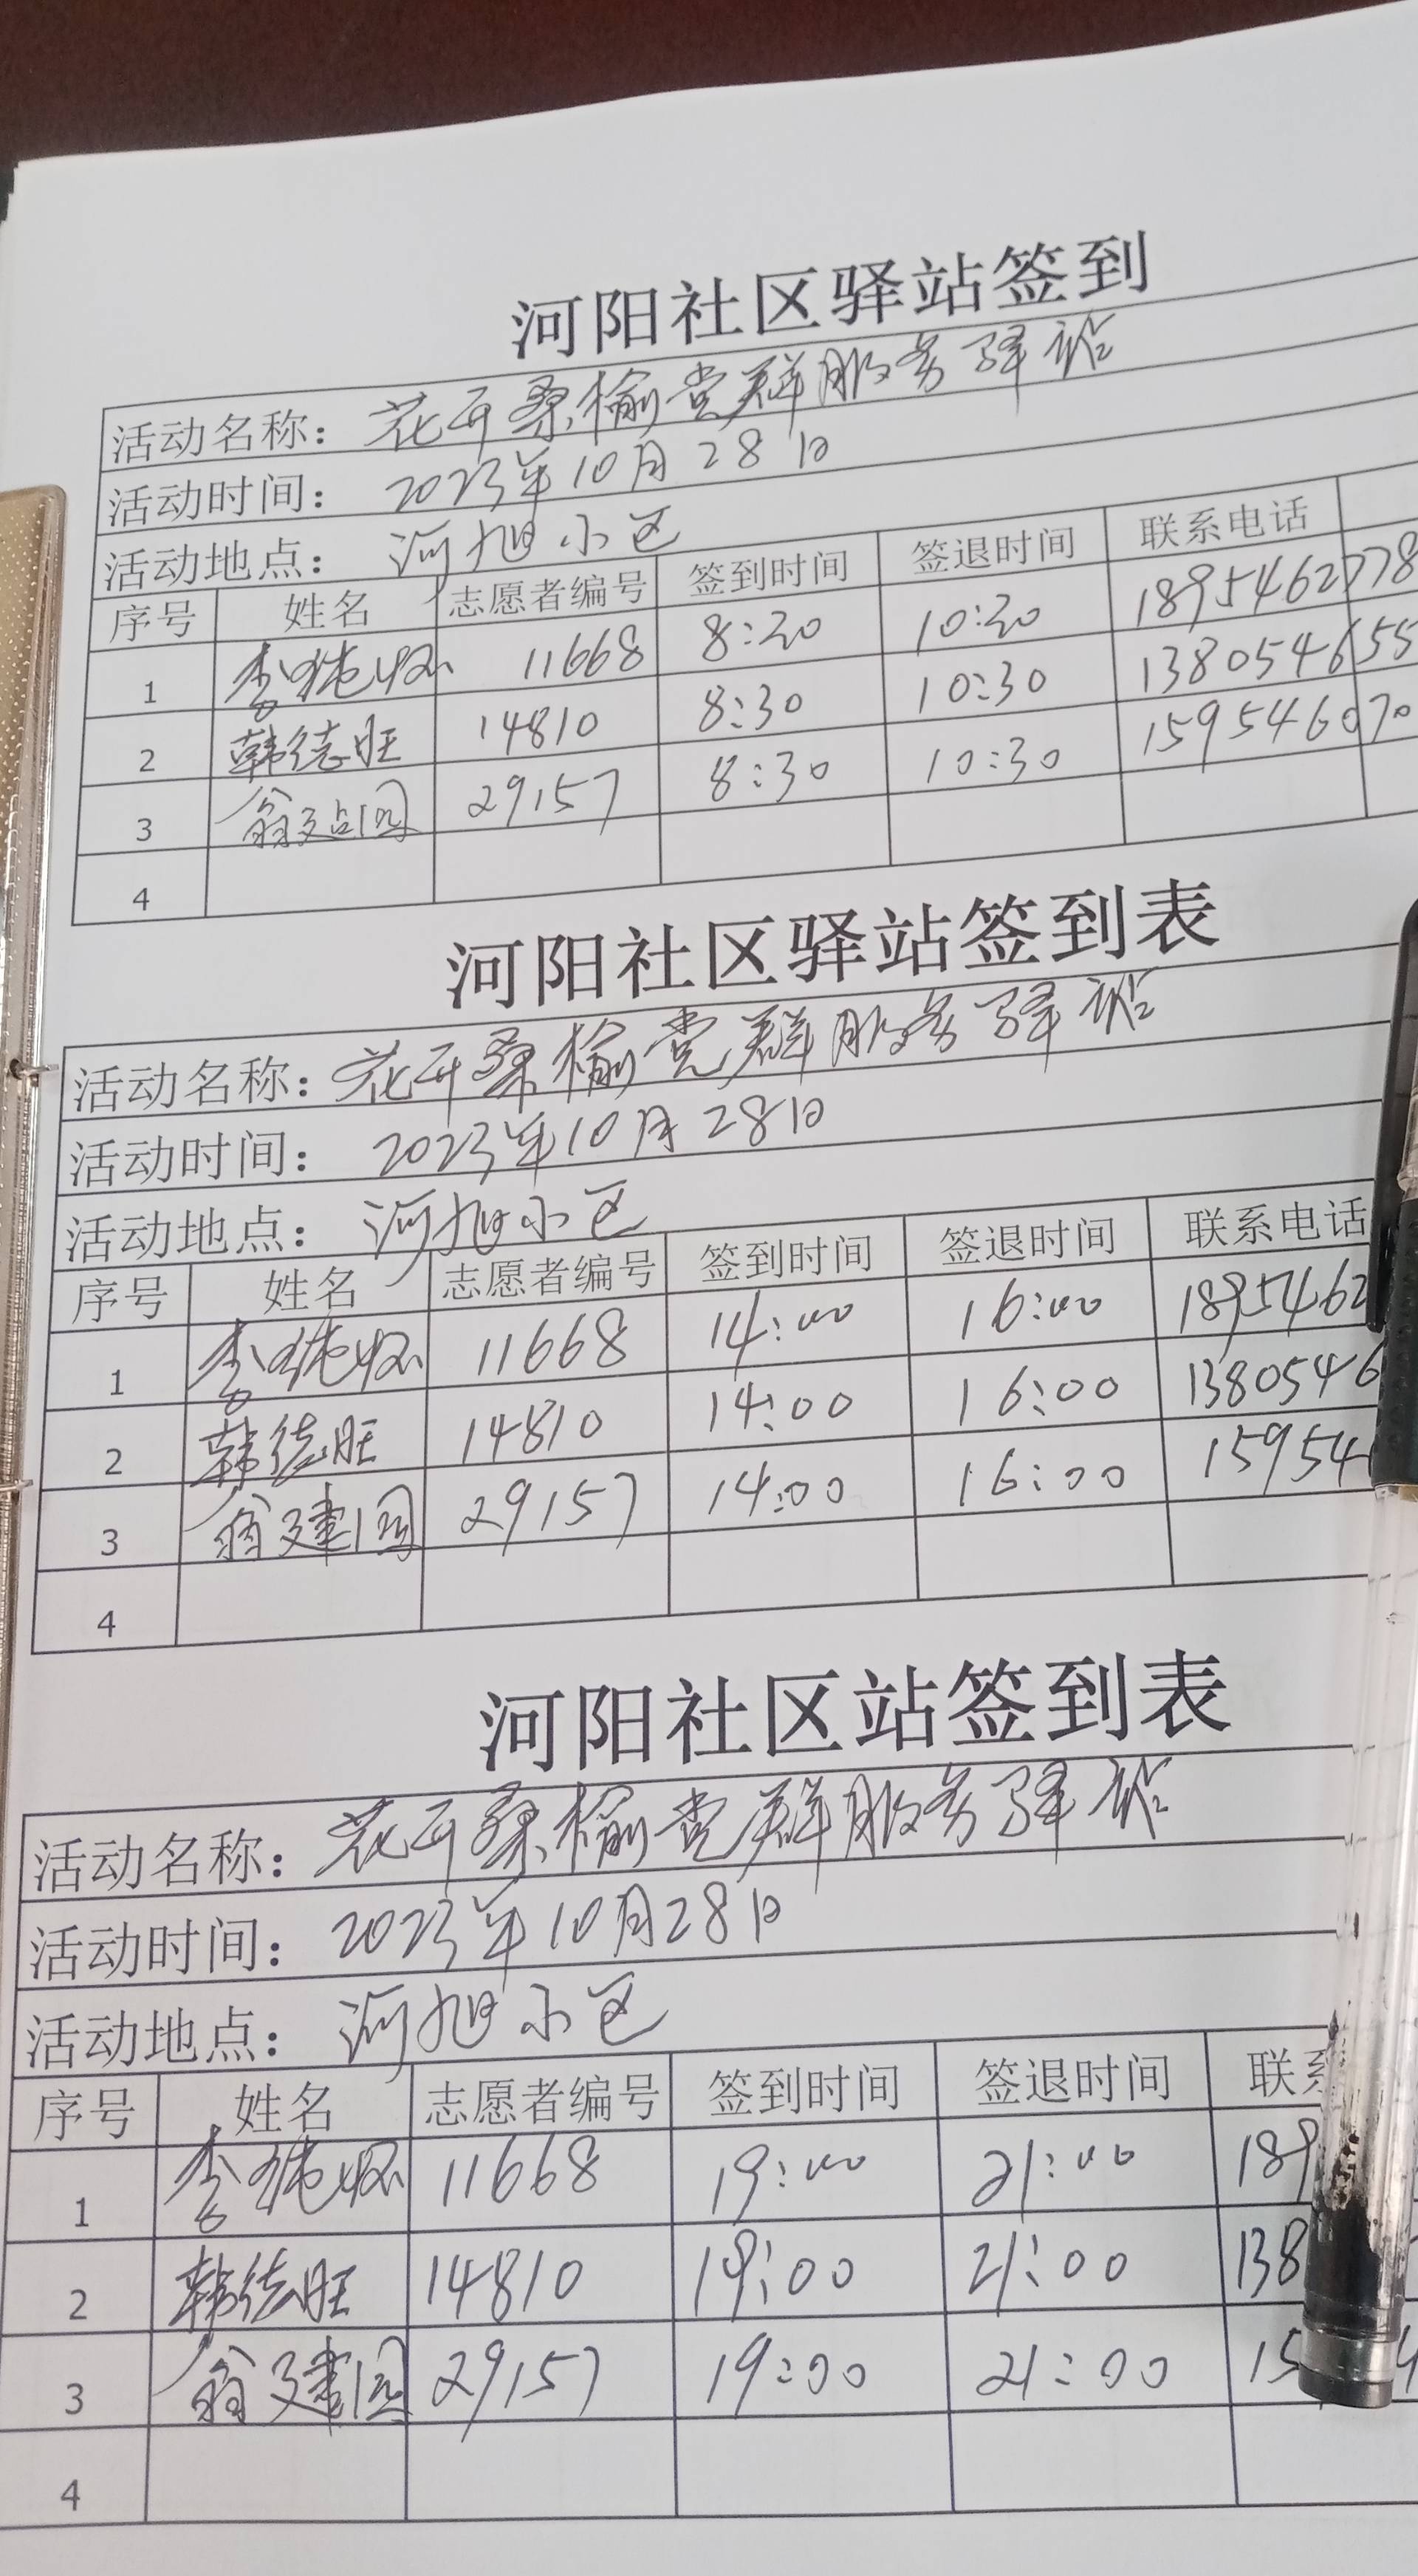 河阳社区驿站签到
活动名称：花开桑榆党群服务驿站
活动时间：2023年10月28日
活动地点：河旭小区
序号 姓名 志愿者编号 签到时间 签退时间 联系电话
1 李 11668 8:30 10:30 18954627778
2 韩德旺 14810 8:30 10:30 138054655
3 翁建国 29157 8:30 10:30 159546070
4
河阳社区驿站签到表
活动名称：花开桑榆党群服务驿站
活动时间：2023年10月28日
活动地点：河旭小区
序号 姓名 志愿者编号 签到时间 签退时间 联系电话
1 李 11668 14:00 16:00 1895462
2 韩德旺 14810 14:00 16:00 1380546
3 翁建国 29157 14:00 16:00 15954
4
河阳社区站签到表
活动名称：花开桑榆党群服务驿站
活动时间：2023年10月28日
活动地点：河旭小区
序号 姓名 志愿者编号 签到时间 签退时间 联系
1 李 11668 19:00 21:00 189
2 韩德旺 14810 19:00 21:00 138
3 翁建国 29157 19:00 21:00 15
4